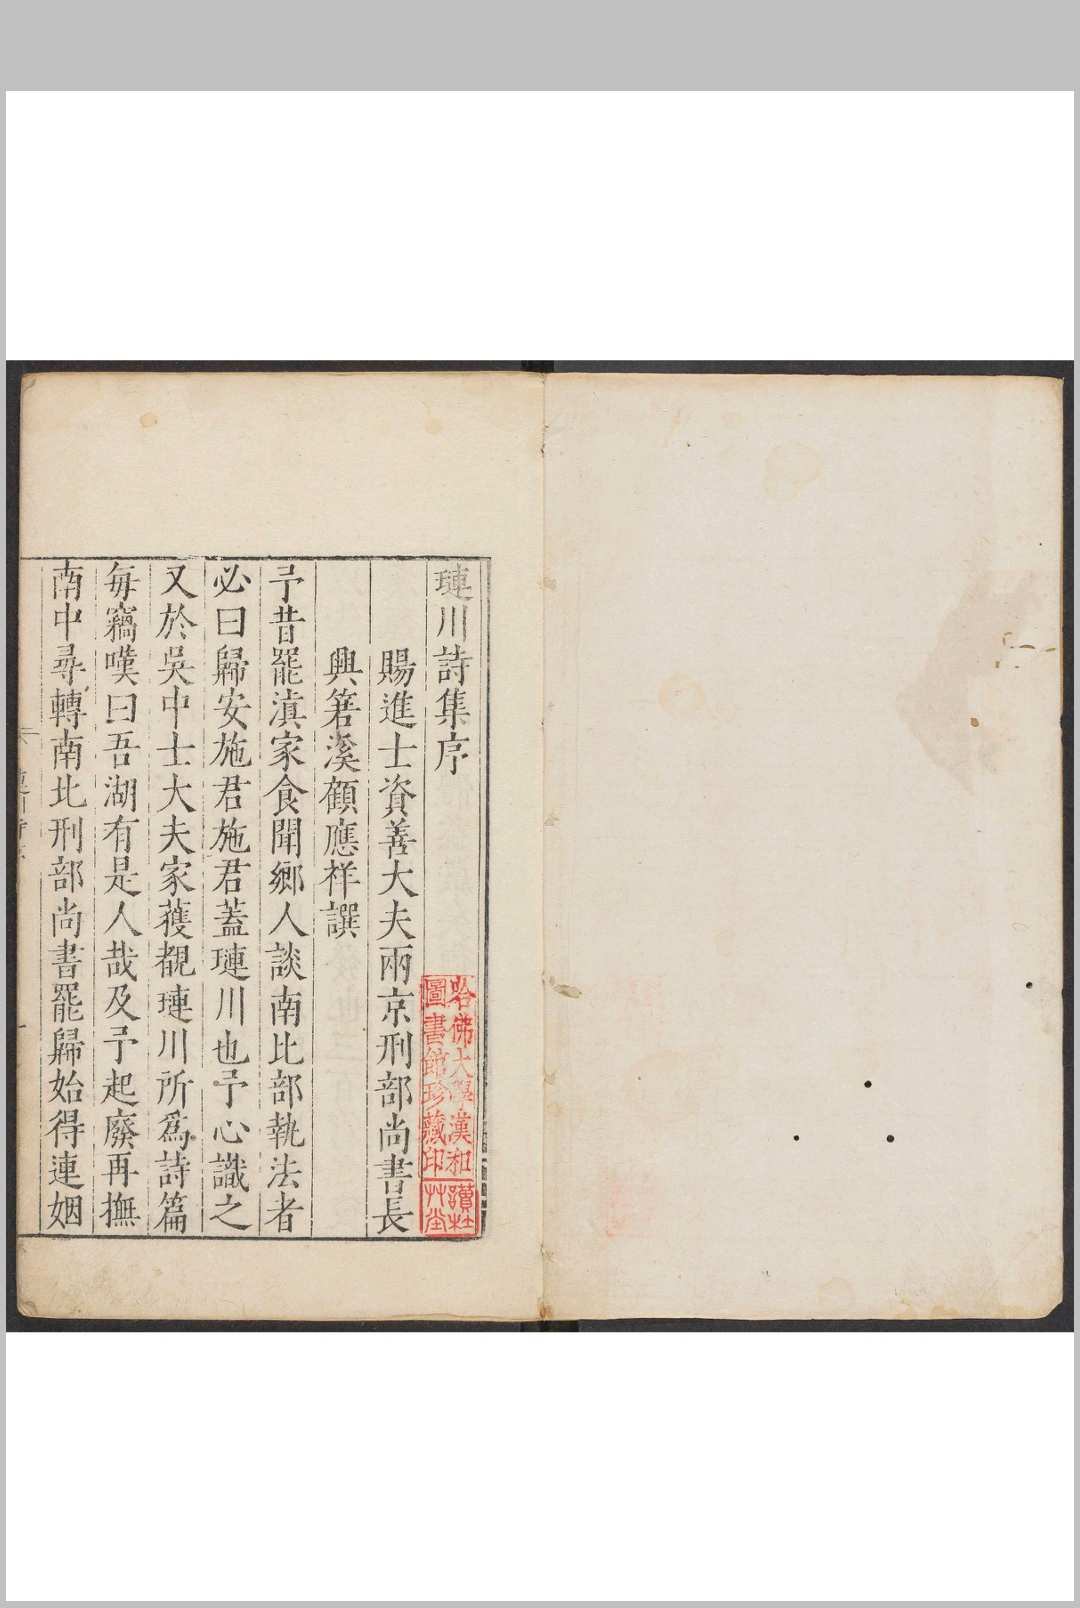 璉川詩集序
賜進士資善大夫兩京刑部尚書長
興箬溪顧應祥譔
予昔罷滇家食聞鄉人談南比部執法者
必曰歸安施君施君蓋璉川也予心識之
又於吳中士大夫家蒦覩璉川所爲詩篇
每竊嘆曰吾湖有是人哉及予起廢再撫
南中尋轉南北刑部尚書罷歸始得連姻
哈佛大學漢和
圖書館珍藏印
讀杜
艸堂